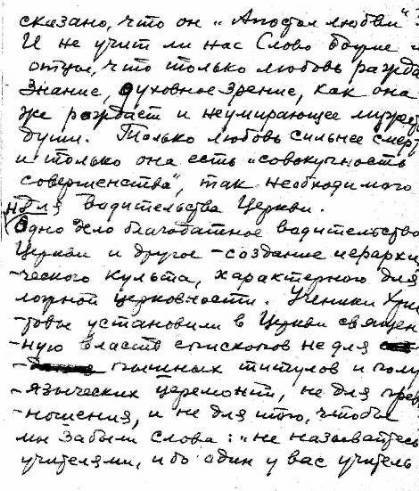 сказано, что он „Апостол любви"
И не учит ли нас Слово Божие
отцы, что только любовь рожда
знание, духовное зрение, как она
же рождает и неумирающее мужест
души. Только любовь сильнее смер
и только она есть „совокупность
совершенства", так необходимого
для водительства Церкви.
Одно дело благодатное водительство
Церкви и другое - создание иерархи
-ческого культа, характерного для
ложной церковности. Ученики Хри
-товы установили в Церкви священ
-ную власть епископов не для
пышных титулов и полу
-языческих церемоний, не для пре
-ношения, и не для того, чтобы
мы забыли слова: „не называйтесь
учителями, ибо один у вас учитель